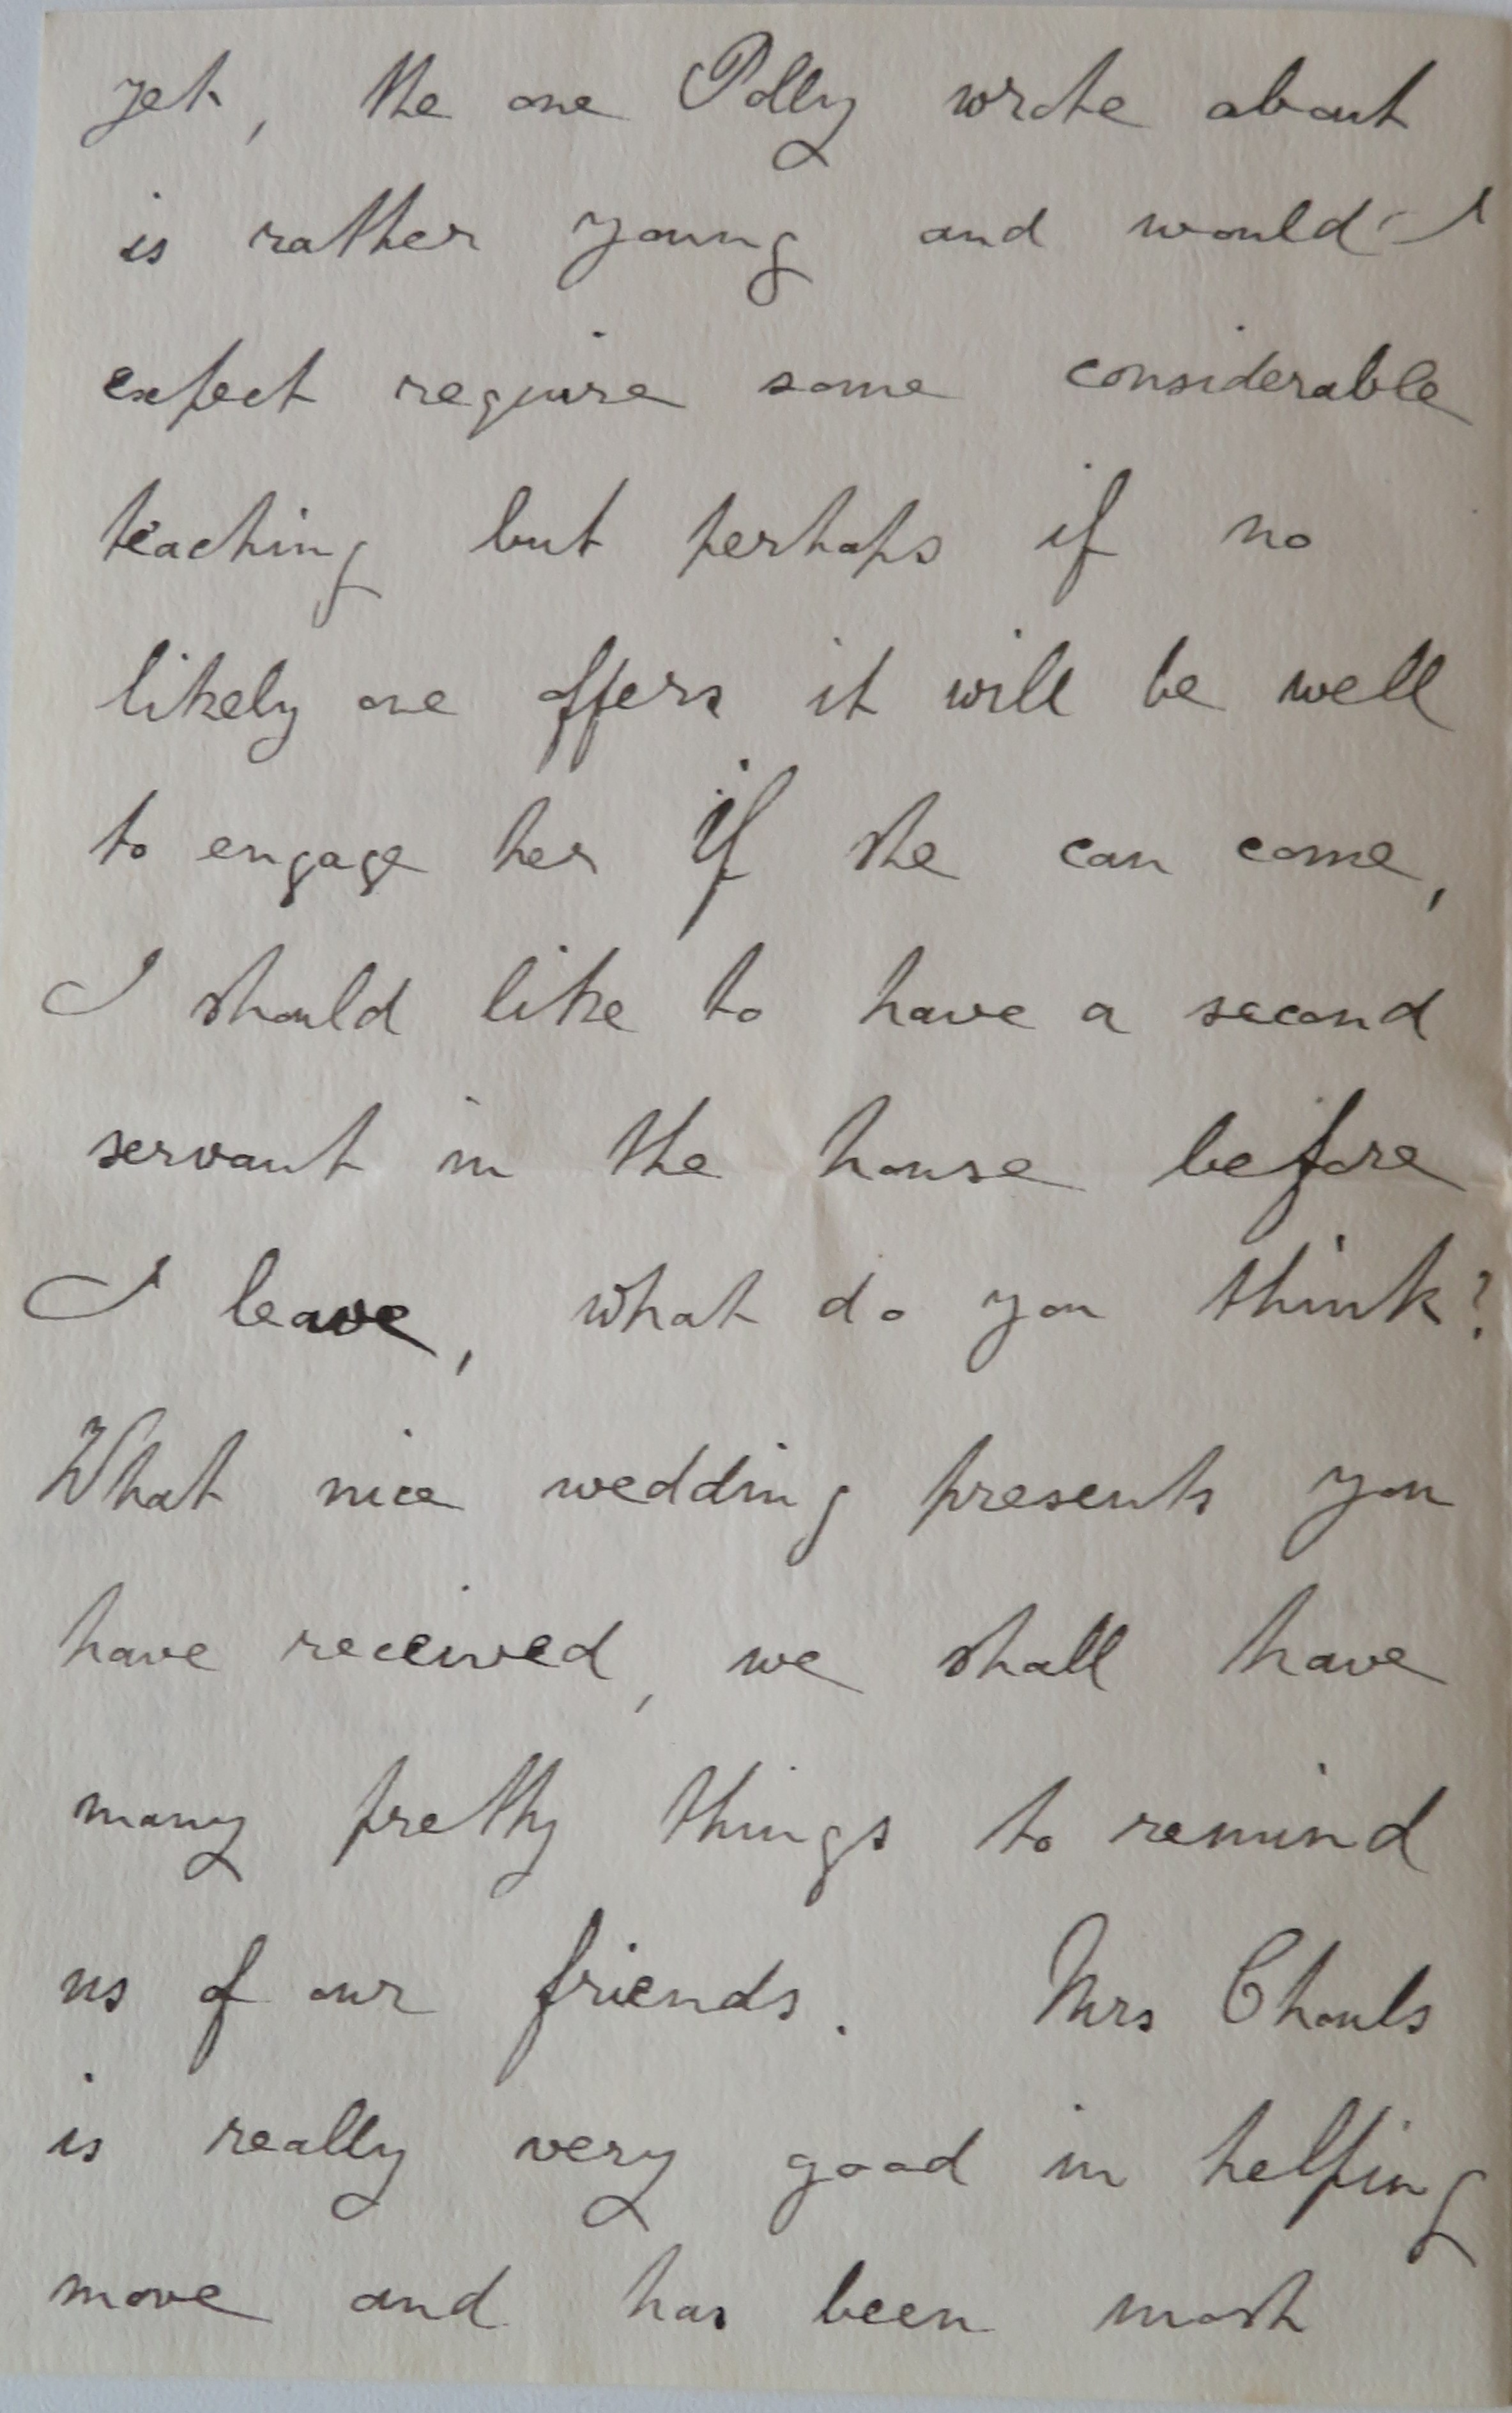 yet, the one Polly wrote about
is rather young and would I
expect require some considerable
teaching but perhaps if no
likely one offers it will be well
to engage her if she can come,
I should like to have a second
servant in the house before
I leave, what do you think?
What nice wedding presents you
have received, we shall have
many pretty things to remind
us of our friends. Mrs Chouls
is really very good in helping
move and has been most